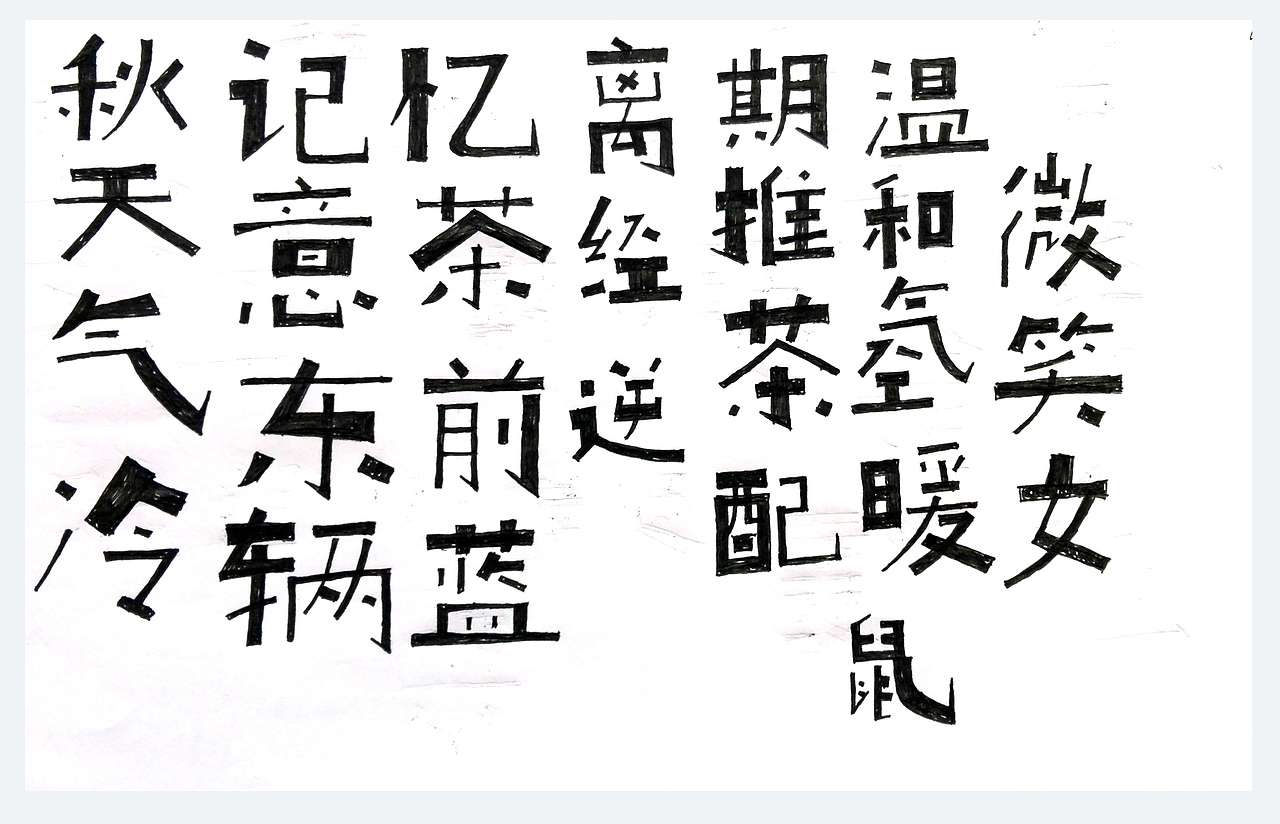 秋天气冷
记意东辆
忆茶前蓝
离经逆
期推茶配
温和氢暖鼠
微笑女